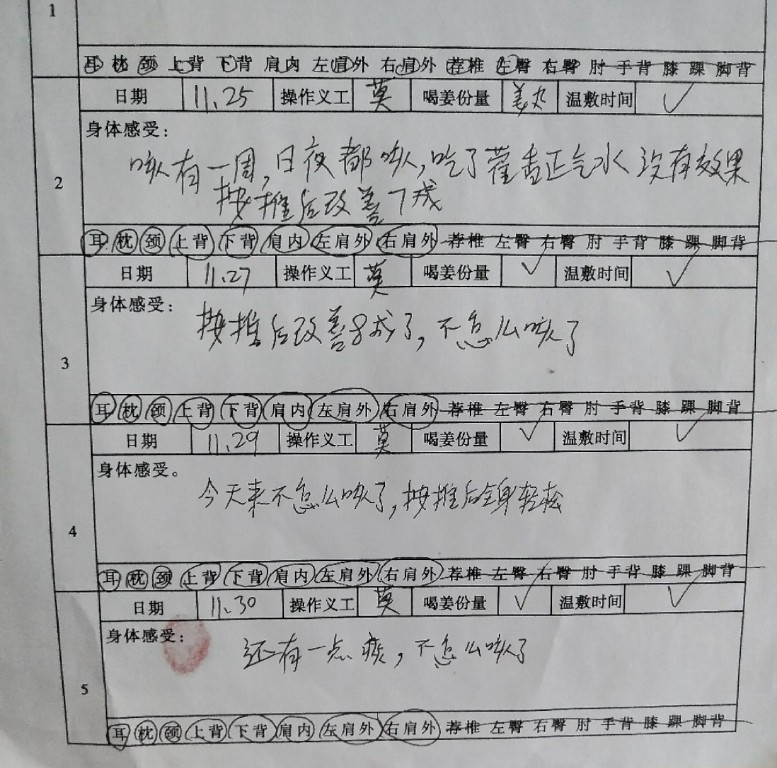 1
耳 枕 颈 上背 下背 肩内 左肩外 右肩外 荐椎 左臀 右臀 肘 手背 膝 踝 脚背
日期 11.25 操作义工 莫 喝姜份量 姜丸 温敷时间 ✓
身体感受：
2
咳有一周,日夜都咳,吃了藿香正气水没有效果
按推后改善7成
耳 枕 颈 上背 下背 肩内 左肩外 右肩外 荐椎 左臀 右臀 肘 手背 膝 踝 脚背
日期 11.27 操作义工 莫 喝姜份量 ✓ 温敷时间 ✓
身体感受：
3
按推后改善8成了,不怎么咳了
耳 枕 颈 上背 下背 肩内 左肩外 右肩外 荐椎 左臀 右臀 肘 手背 膝 踝 脚背
日期 11.29 操作义工 莫 喝姜份量 ✓ 温敷时间 ✓
身体感受。
4
今天来不怎么咳了,按推后全身轻松
耳 枕 颈 上背 下背 肩内 左肩外 右肩外 荐椎 左臀 右臀 肘 手背 膝 踝 脚背
日期 11.30 操作义工 莫 喝姜份量 ✓ 温敷时间 ✓
身体感受：
5
还有一点痰,不怎么咳了
耳 枕 颈 上背 下背 肩内 左肩外 右肩外 荐椎 左臀 右臀 肘 手背 膝 踝 脚背